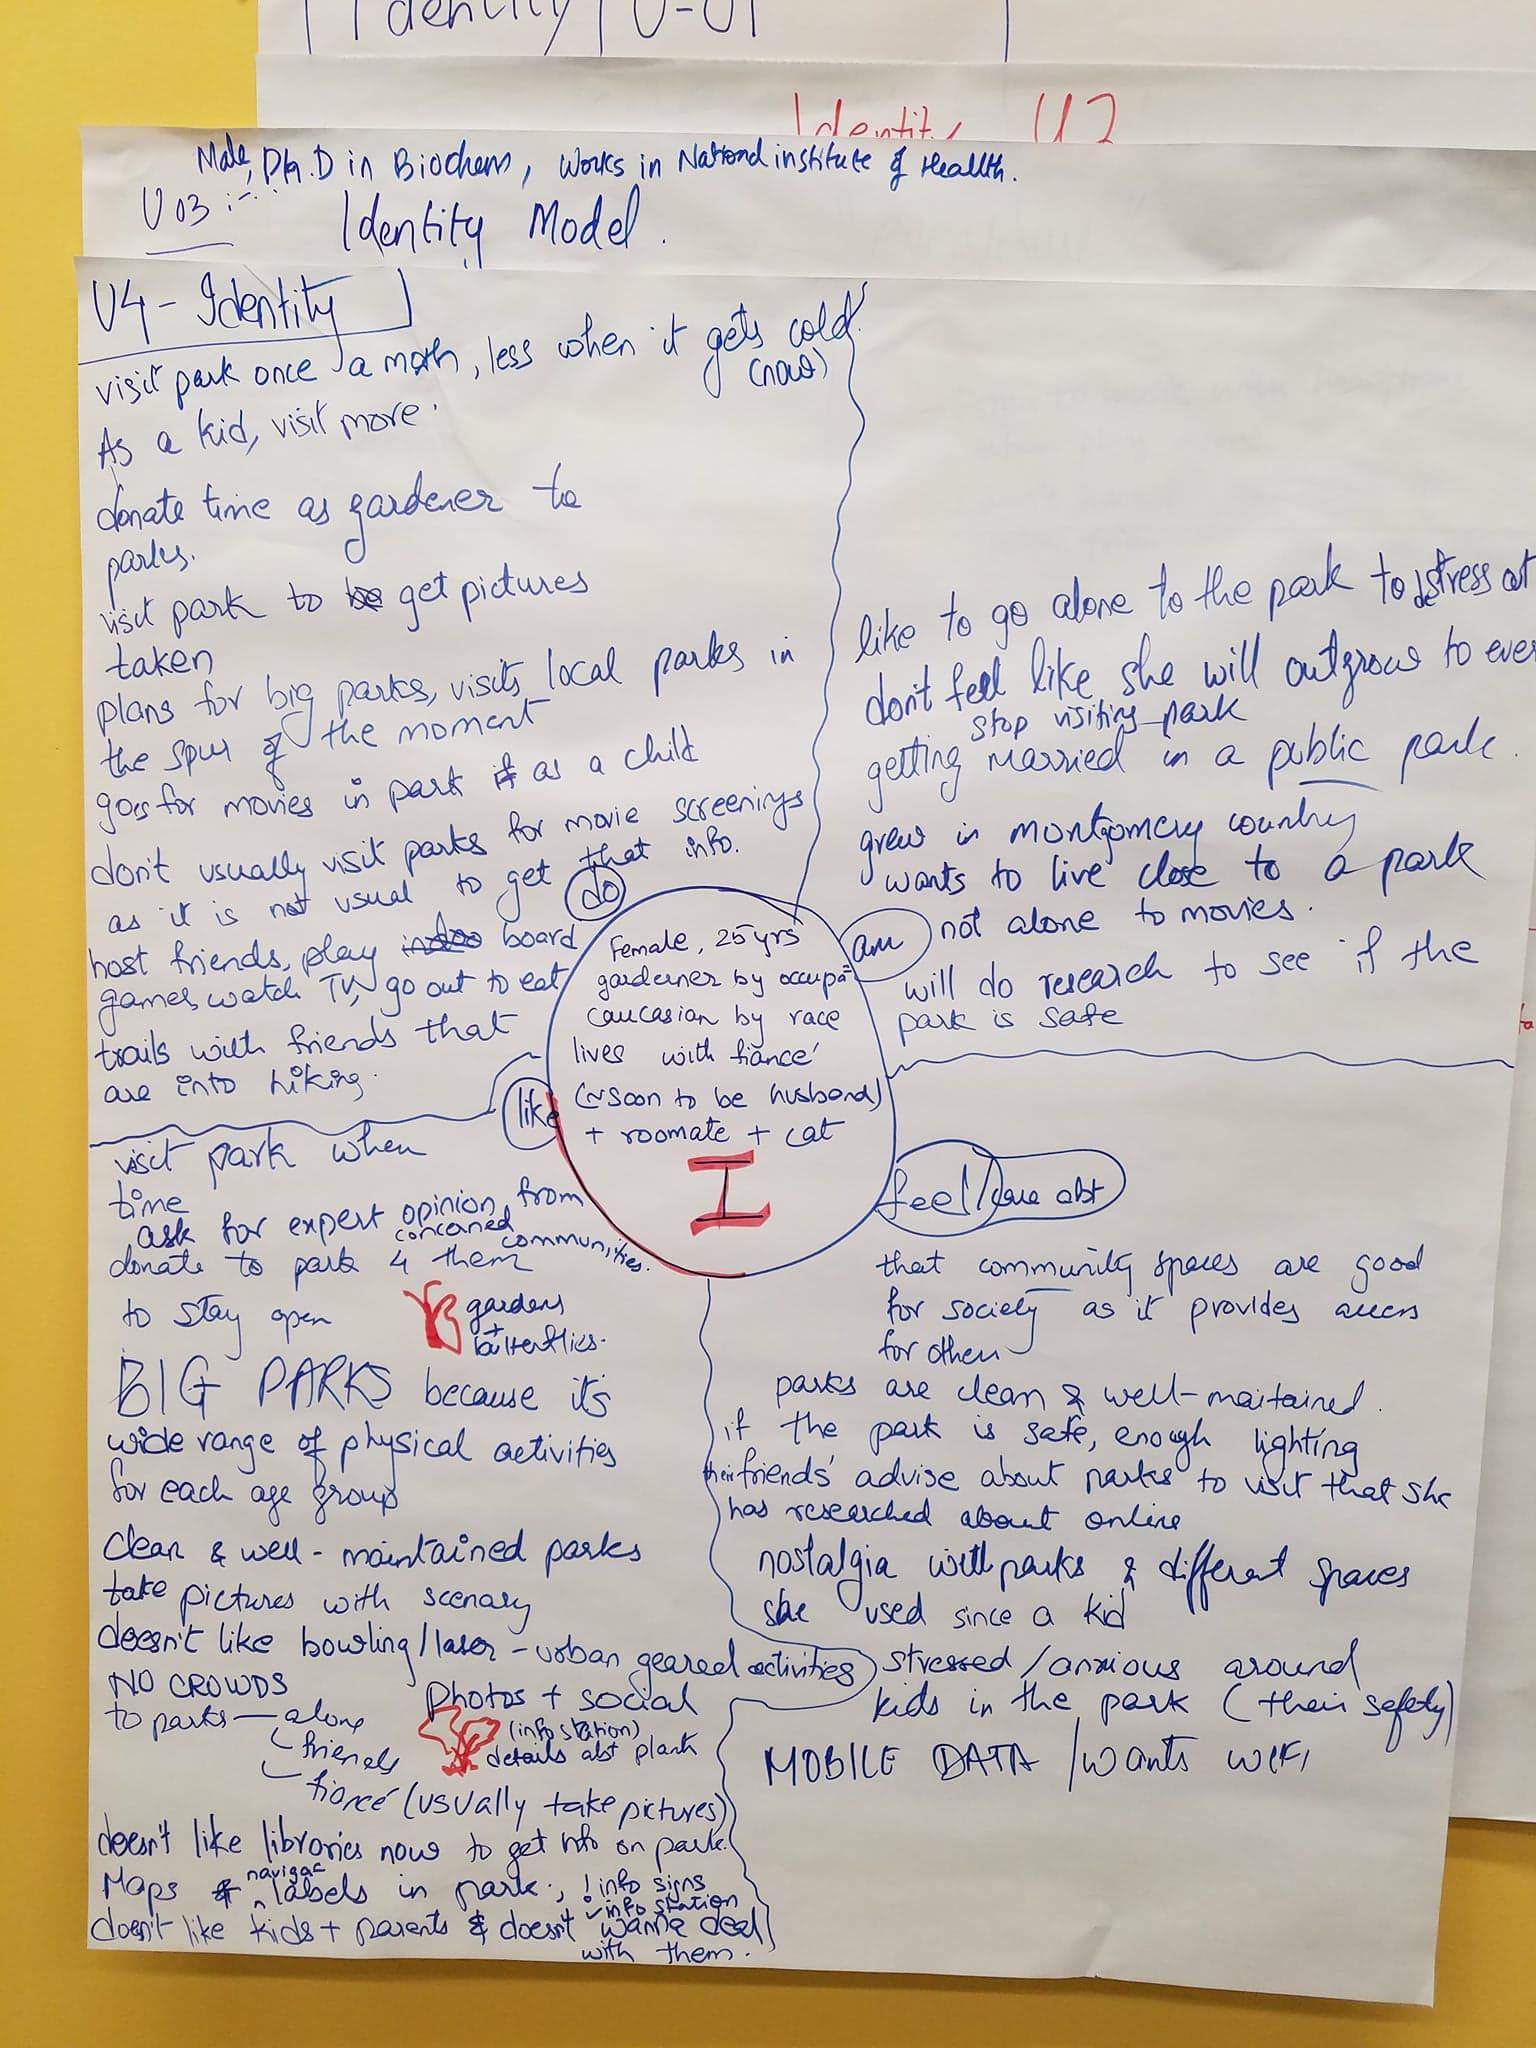 Identity U-01
Identity U2
Male, Ph.D in Biochem, works in National institute of Health.
U03 :-
Identity Model.
U4 - Identity
visit park once a month, less when it gets cold
(now)
As a kid, visit more.
donate time as gardener to
parks.
visit park to be get pictures
taken
plans for big parks, visits local parks in
the spur of the moment
goes for movies in park if as a child
don't usually visit parks for movie screenings
as it is not usual to get that info.
host friends, play board
games, watch TV, go out to eat
trails with friends that
are into hiking.
do
like to go alone to the park to destress out
don't feel like she will outgrow to ever
stop visiting park
getting married in a public park.
grew in montgomery country
wants to live close to a park
am
not alone to movies.
will do research to see if the
park is safe
Female, 25 yrs
gardener by occupa
caucasian by race
lives with fiancé
(~soon to be husband)
+ roomate + cat
I
like
visit park when
time
ask for expert opinion from
concerned communities.
donate to park 4 them
to stay open
gardens
+
butterflies.
BIG PARKS because it's
wide range of physical activities
for each age group
clean & well-maintained parks
take pictures with scenary
doesn't like bowling/laser - urban geared activities
NO CROWDS
to parks - alone
friends
fiancé (usually take pictures)
Photos + social
(info station)
details abt plant
doesn't like libraries now to get info on park.
Maps & navigac labels in park., ! info signs
✓ info station
doesn't like kids + parents & doesn't wanna deal
with them.
feel/care abt
that community spaces are good
for society as it provides access
for others
parks are clean & well-maitained.
if the park is safe, enough lighting
their friends' advise about parks to visit that she
has researched about online
nostalgia with parks & different spaces
she used since a kid
stressed/anxious around
kids in the park (their safety)
MOBILE DATA /wants WIFI